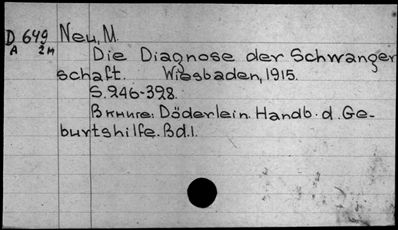 D 649 Neu, M.
A 2m
Die Diagnose der Schwanger
schaft. Wiesbaden, 1915.
S. 246-328.
Вкниге: Döderlein. Handb. d. Ge-
burtshilfe. Bd. 1.